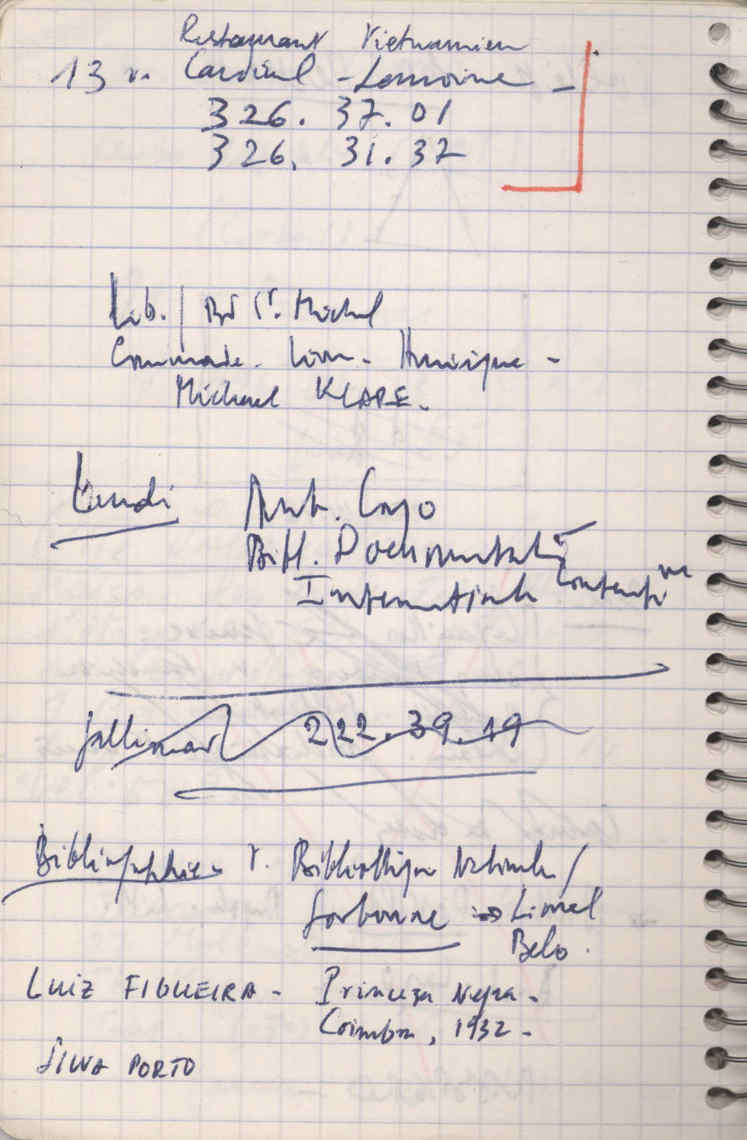 Restaurant Vietnamien
13 r. Cardinal - Lemoine -
326. 37.01
326. 31.37
Lib. / Bd St. Michel
Commande. Livre -
Michael
Lundi
Bibl. Documentation
Internationale Contemp.
Gallimard 222.39.19
Bibliographie Bibliothèque Nationale /
Sorbonne → Lionel
Belo.
LUIZ FIGUEIRA - Princeza Negra -
Coimbra, 1932 -
SILVA PORTO